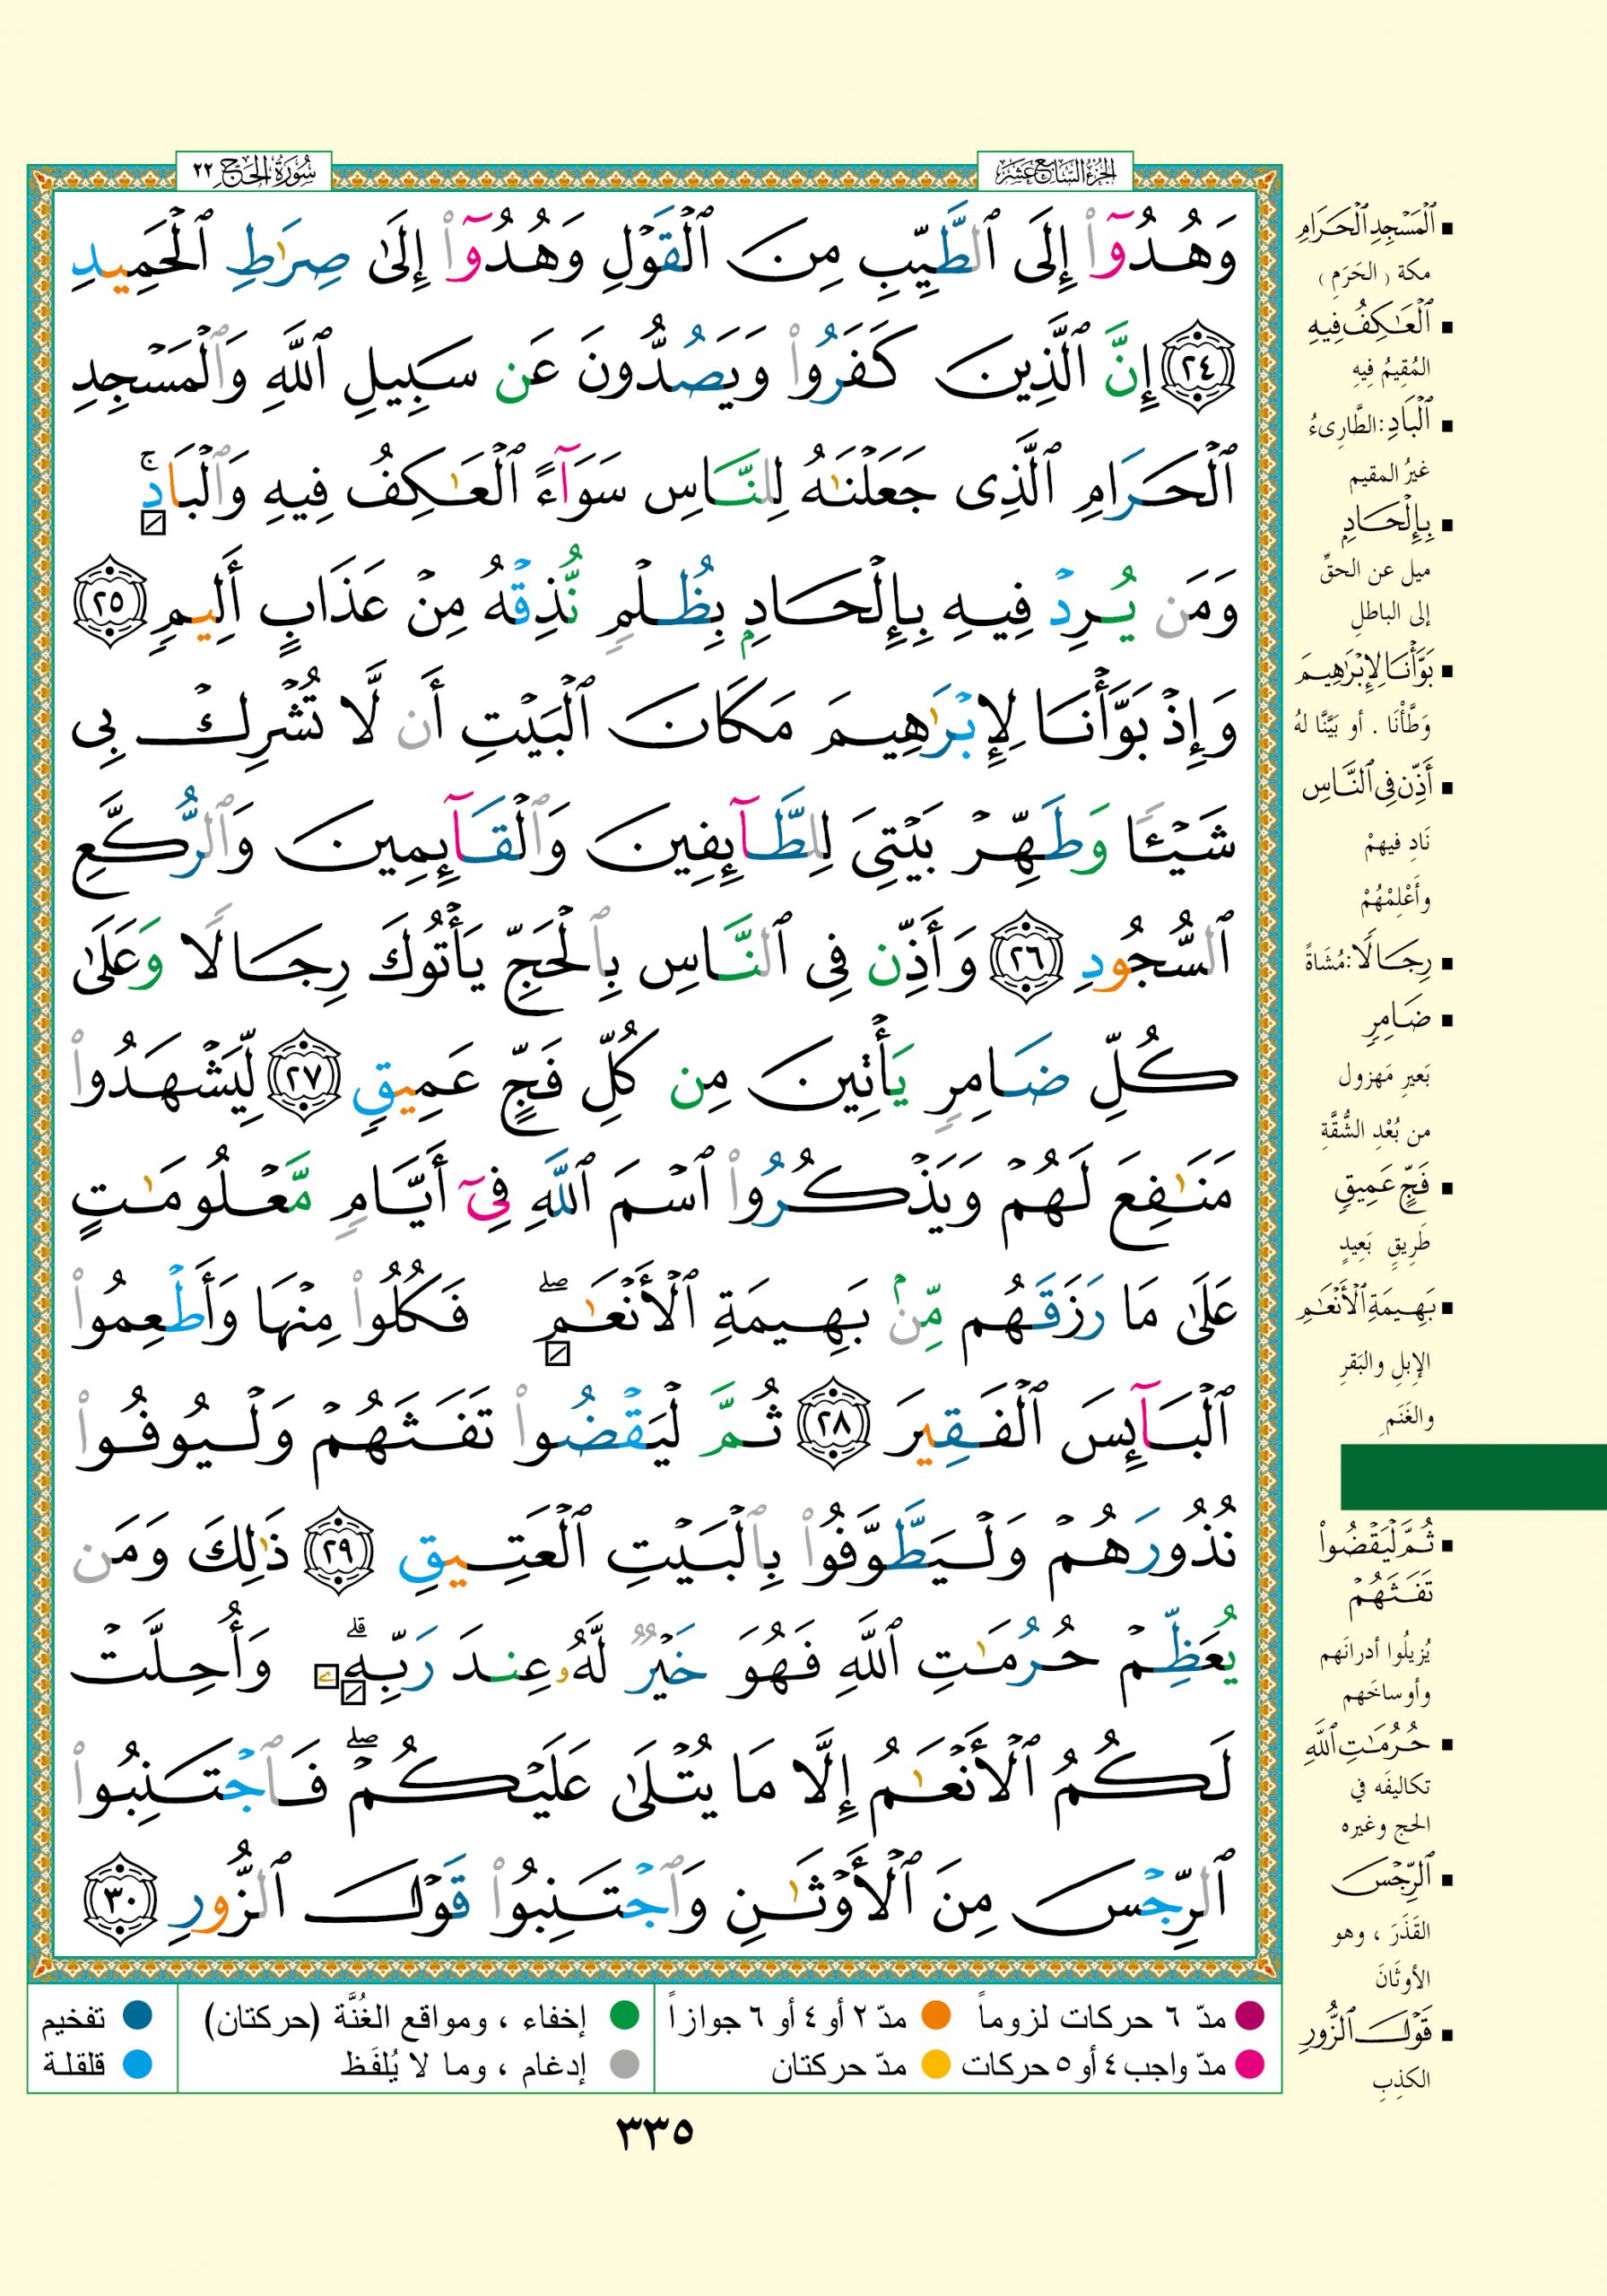 الجزء السابع عشر
سورة الحج ٢٢
وَهُدُوٓا۟ إِلَى ٱلطَّيِّبِ مِنَ ٱلْقَوْلِ وَهُدُوٓا۟ إِلَىٰ صِرَٰطِ ٱلْحَمِيدِ
﴿٢٤﴾ إِنَّ ٱلَّذِينَ كَفَرُوا۟ وَيَصُدُّونَ عَن سَبِيلِ ٱللَّهِ وَٱلْمَسْجِدِ
ٱلْحَرَامِ ٱلَّذِى جَعَلْنَٰهُ لِلنَّاسِ سَوَآءً ٱلْعَٰكِفُ فِيهِ وَٱلْبَادِ ۚ
وَمَن يُرِدْ فِيهِ بِإِلْحَادٍۭ بِظُلْمٍ نُّذِقْهُ مِنْ عَذَابٍ أَلِيمٍ ﴿٢٥﴾
وَإِذْ بَوَّأْنَا لِإِبْرَٰهِيمَ مَكَانَ ٱلْبَيْتِ أَن لَّا تُشْرِكْ بِى
شَيْـًٔا وَطَهِّرْ بَيْتِىَ لِلطَّآئِفِينَ وَٱلْقَآئِمِينَ وَٱلرُّكَّعِ
ٱلسُّجُودِ ﴿٢٦﴾ وَأَذِّن فِى ٱلنَّاسِ بِٱلْحَجِّ يَأْتُوكَ رِجَالًا وَعَلَىٰ
كُلِّ ضَامِرٍ يَأْتِينَ مِن كُلِّ فَجٍّ عَمِيقٍ ﴿٢٧﴾ لِّيَشْهَدُوا۟
مَنَٰفِعَ لَهُمْ وَيَذْكُرُوا۟ ٱسْمَ ٱللَّهِ فِىٓ أَيَّامٍ مَّعْلُومَٰتٍ
عَلَىٰ مَا رَزَقَهُم مِّنۢ بَهِيمَةِ ٱلْأَنْعَٰمِ ۖ فَكُلُوا۟ مِنْهَا وَأَطْعِمُوا۟
ٱلْبَآئِسَ ٱلْفَقِيرَ ﴿٢٨﴾ ثُمَّ لْيَقْضُوا۟ تَفَثَهُمْ وَلْيُوفُوا۟
نُذُورَهُمْ وَلْيَطَّوَّفُوا۟ بِٱلْبَيْتِ ٱلْعَتِيقِ ﴿٢٩﴾ ذَٰلِكَ وَمَن
يُعَظِّمْ حُرُمَٰتِ ٱللَّهِ فَهُوَ خَيْرٌ لَّهُۥ عِندَ رَبِّهِۦ ۗ وَأُحِلَّتْ
لَكُمُ ٱلْأَنْعَٰمُ إِلَّا مَا يُتْلَىٰ عَلَيْكُمْ ۖ فَٱجْتَنِبُوا۟
ٱلرِّجْسَ مِنَ ٱلْأَوْثَٰنِ وَٱجْتَنِبُوا۟ قَوْلَ ٱلزُّورِ ﴿٣٠﴾
ٱلْمَسْجِدِ ٱلْحَرَامِ
مكة (الحَرَمِ)
ٱلْعَٰكِفُ فِيهِ
المُقِيمُ فِيهِ
ٱلْبَادِ: الطَّارِىءُ
غيرُ المقيم
بِإِلْحَادٍ
ميل عن الحقِّ
إلى الباطلِ
بَوَّأْنَا لِإِبْرَٰهِيمَ
وَطَّأْنَا . أو بَيَّنَّا لهُ
أَذِّن فِى ٱلنَّاسِ
نَادِ فيهمْ
وأَعْلِمْهُمْ
رِجَالًا: مُشَاةً
ضَامِرٍ
بَعيرٍ مَهزول
من بُعْدِ الشُّقَّةِ
فَجٍّ عَمِيقٍ
طَرِيقٍ بَعِيدٍ
بَهِيمَةِ ٱلْأَنْعَٰمِ
الإبلِ والبَقرِ
والغَنَمِ
ثُمَّ لْيَقْضُوا۟
تَفَثَهُمْ
يُزيلُوا أدرانَهم
وأوساخَهم
حُرُمَٰتِ ٱللَّهِ
تكاليفَه في
الحج وغيره
ٱلرِّجْسَ
القَذَرَ ، وهو
الأوثَانَ
قَوْلَ ٱلزُّورِ
الكذِبِ
مدّ ٦ حركات لزوماً
مدّ ٢ أو ٤ أو ٦ جوازاً
إخفاء ، ومواقع الغُنَّة (حركتان)
تفخيم
مدّ واجب ٤ أو ٥ حركات
مدّ حركتان
إدغام ، وما لا يُلفَظ
قلقلة
٣٣٥